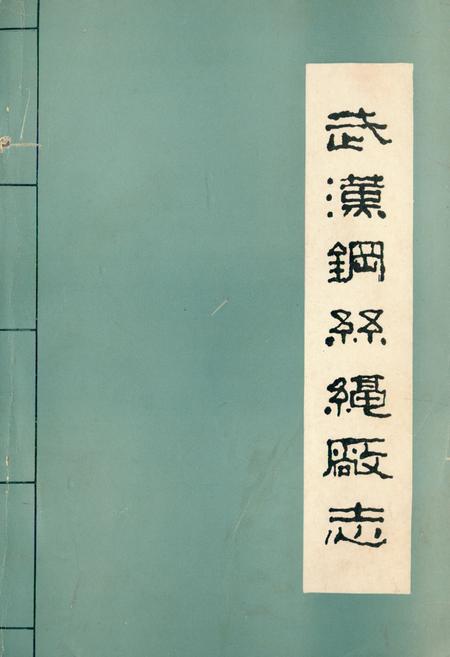 武漢鋼絲繩廠志